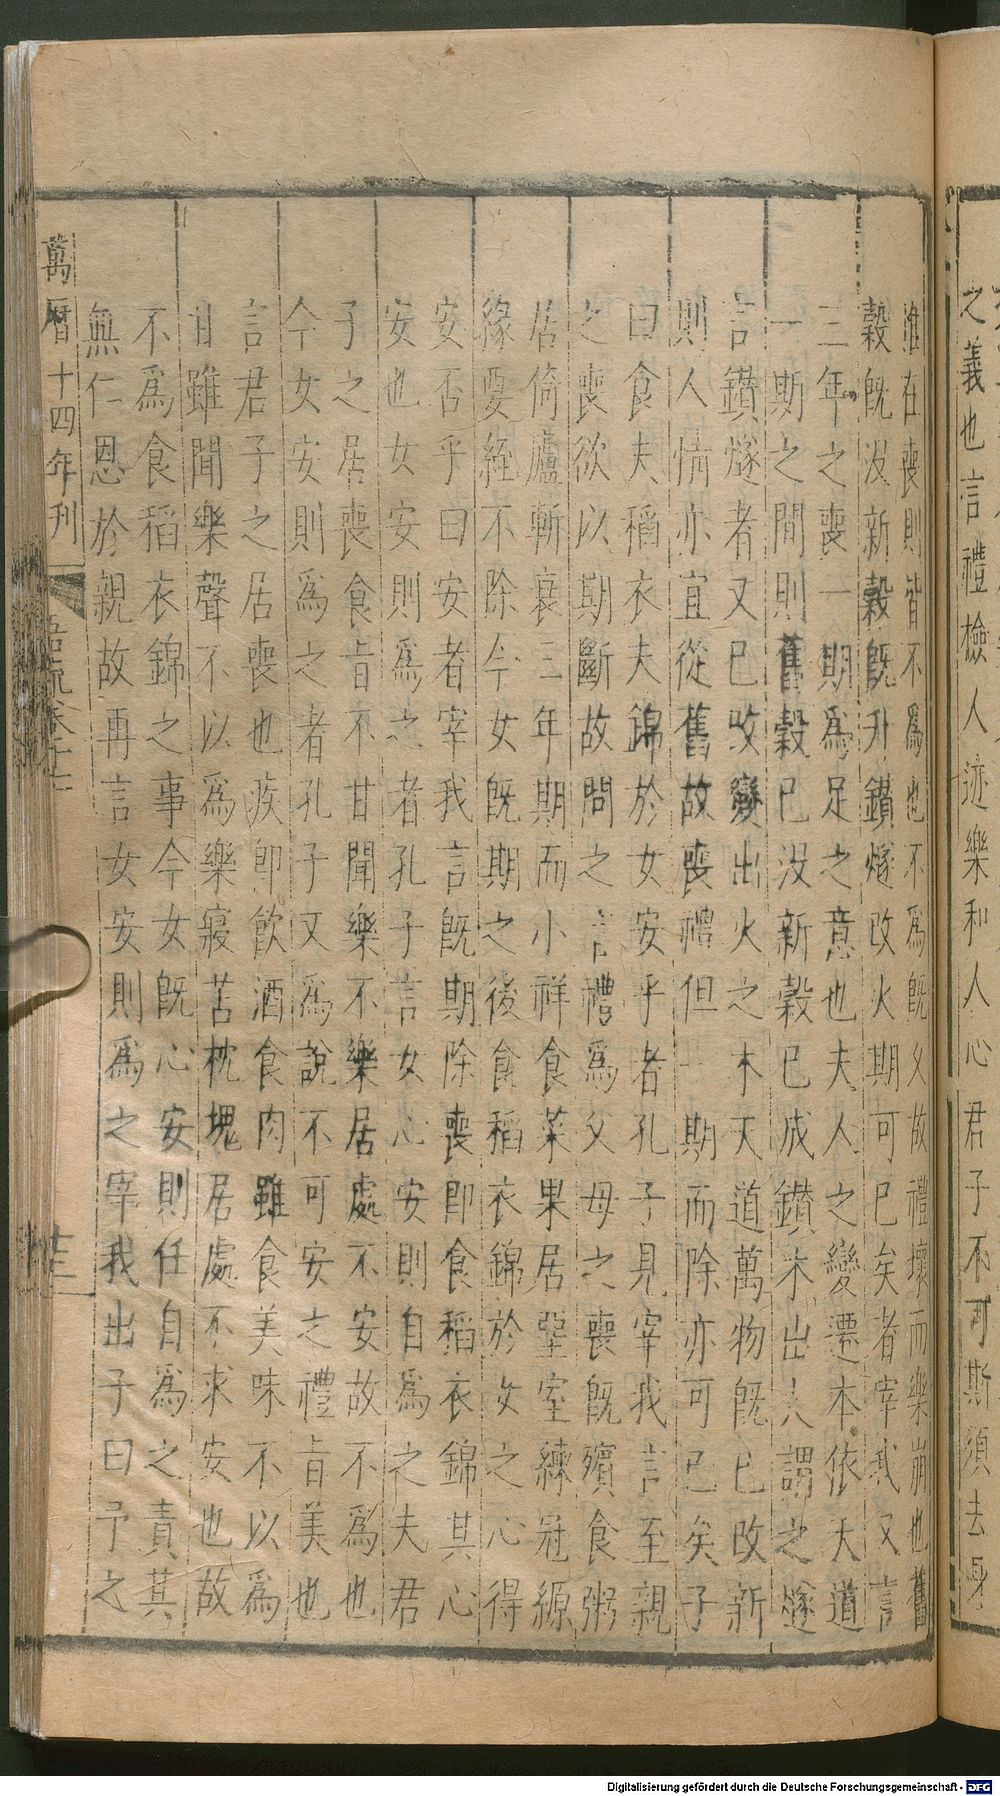 之義也言禮檢人迹樂和人心君子不可斯須去身
惟在喪則皆不為也不為既久故禮壞而樂崩也舊
穀既没新穀既升鑚燧改火期可已矣者宰我又言
三年之喪一期為足之意也夫人之變遷本依天道
一期之間則舊穀已没新穀已成鑚木出火謂之燧
言鑚燧者又已改變出火之木天道萬物既已改新
則人情亦宜從舊故喪禮但一期而除亦可已矣子
曰食夫稻衣夫錦於女安乎者孔子見宰我言至親
之喪欲以期斷故問之言禮為父母之喪既殯食粥
居倚廬斬衰三年期而小祥食菜果居堊室練冠縓
緣要絰不除今女既期之後食稻衣錦於女之心得
安否乎曰安者宰我言既期除喪即食稻衣錦其心
安也女安則為之者孔子言女心安則自為之夫君
子之居喪食旨不甘聞樂不樂居處不安故不為也
今女安則為之者孔子又為說不可安之禮旨美也
言君子之居喪也疾即飲酒食肉雖食美味不以為
甘雖聞樂聲不以為樂寢苫枕塊居處不求安也故
不為食稻衣錦之事今女既心安則任自為之責其
無仁恩於親故再言女安則為之宰我出子曰予之
萬曆十四年刊 語疏卷十七
Digitalisierung gefördert durch die Deutsche Forschungsgemeinschaft - DFG